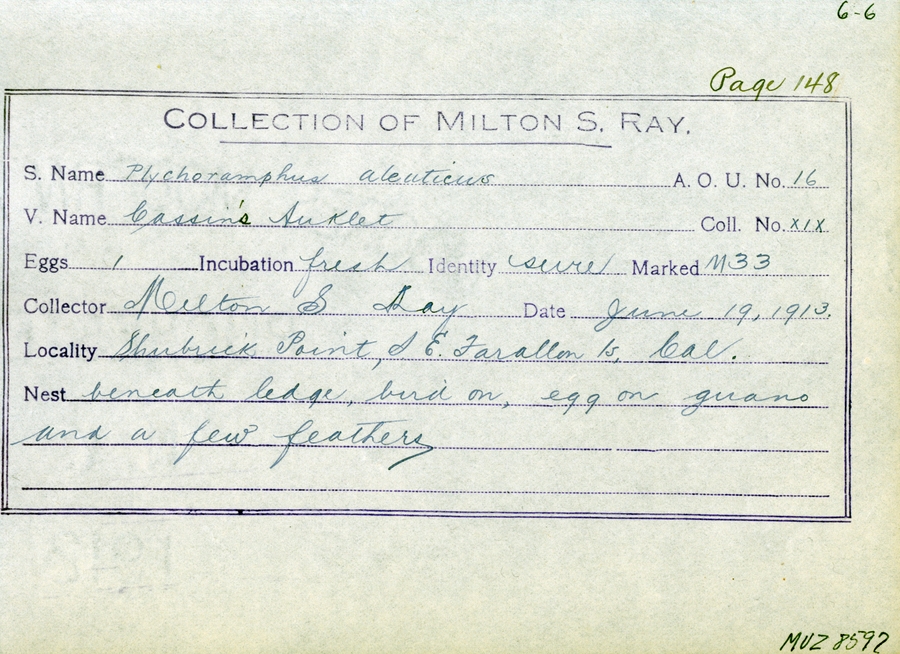 6-6
Page 148
COLLECTION OF MILTON S. RAY.
S. Name Ptychoramphus aleuticus A. O. U. No. 16
V. Name Cassin's Auklet Coll. No. XIX
Eggs 1 Incubation fresh Identity sure Marked M33
Collector Milton S Ray Date June 19, 1913.
Locality Shubrick Point, S E. Farallon Is, Cal.
Nest beneath ledge, bird on, egg on guano
and a few feathers
MVZ 8592